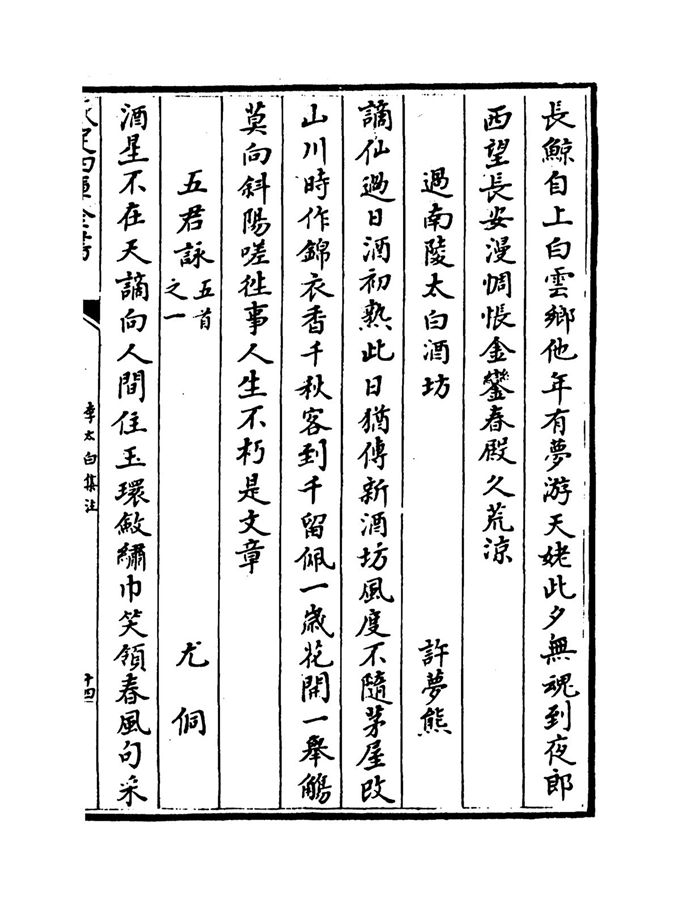 長鯨自上白雲鄉他年有夢游天姥此夕無魂到夜郎
西望長安漫惆悵金鑾春殿久荒涼
過南陵太白酒坊
許夢熊
謫仙過日酒初熟此日猶傳新酒坊風度不隨茅屋改
山川時作錦衣香千秋客到千留佩一歲花開一舉觴
莫向斜陽嗟徃事人生不朽是文章
五君詠五首之一
尤侗
酒星不在天謫向人間住玉環斂繡巾笑領春風句采
欽定四庫全書
李太白集注
十四